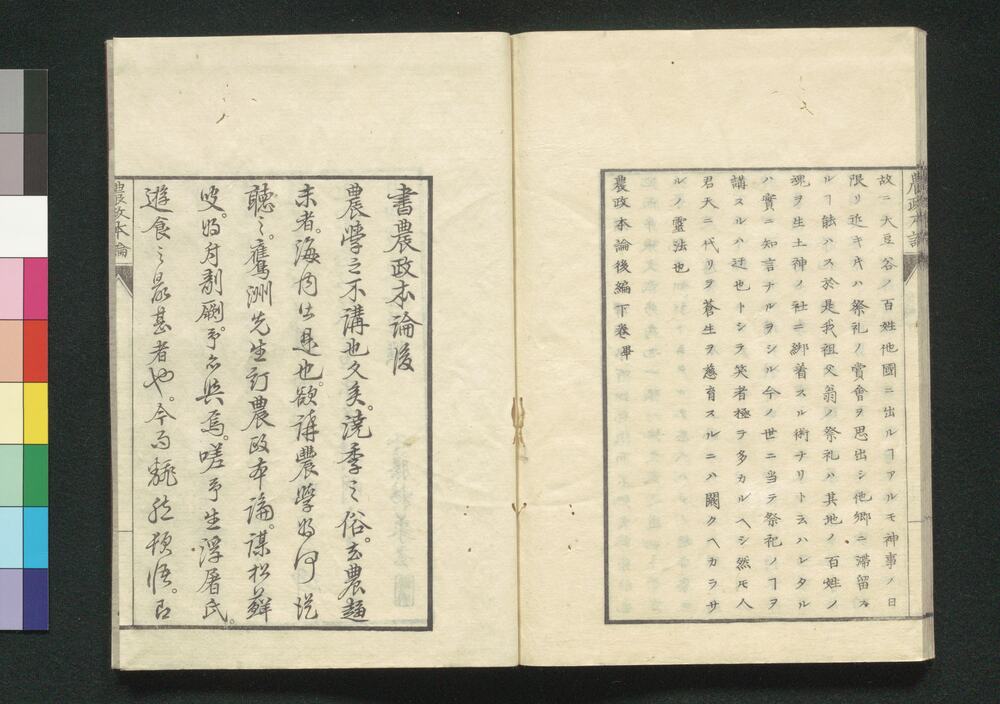 農政本論
故ニ大豆谷ノ百姓他國ニ出ルヿアルモ神事ノ日
限リ近キ片ハ祭礼ノ賞會ヲ思出シ他郷ニ滞留ス
ルヿ能ハス於是我祖父翁ノ祭礼ハ其地ノ百姓ノ
魂ヲ生土神ノ社ニ綁着スル術ナリト云ハレタル
ハ實ニ知言ナルヲシル今ノ世ニ当テ祭祀ノヿヲ
講スルハ迂也トシテ笑者極テ多カルヘシ然モ人
君天ニ代リヲ蒼生ヲ慈育スルニハ闕クヘカラサ
ルノ靈法也
農政本論後編下卷畢
書農政本論後
農學之不講也久矣。澆季之俗。去農趨
末者。海内皆是也。欲講農學將何從
聽之。鷹洲先生訂農政本論。謀松蘚
叟。將付剞劂。予亦與焉。嗟予生浮屠氏。
遊食之最甚者也。今而 然頓悟。
農政本論